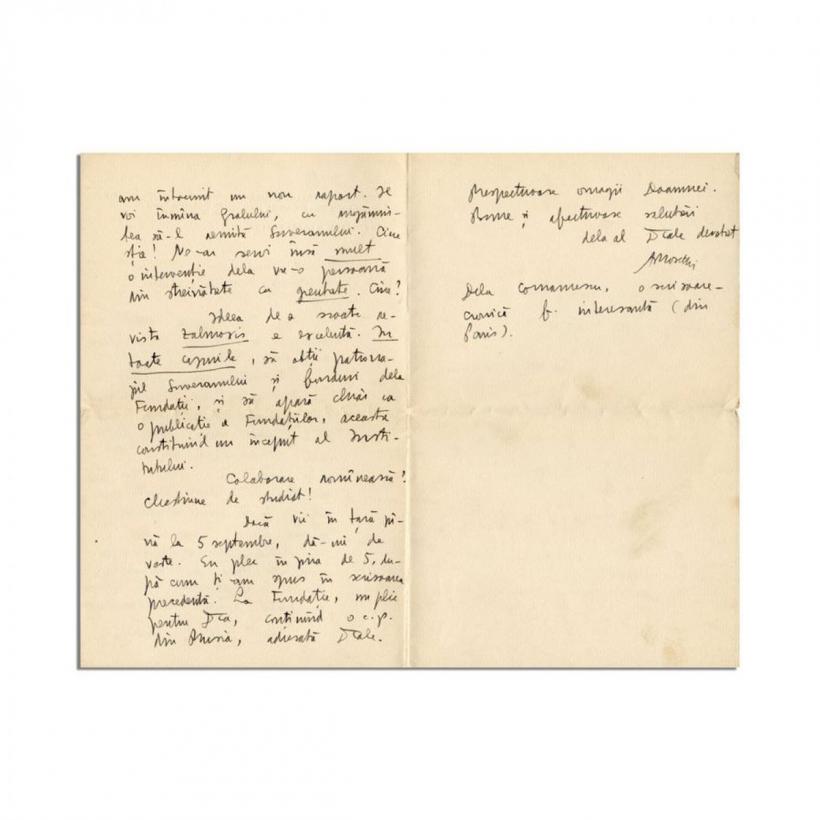 am întocmit un nou raport. Il
voi înmîna Gralului, cu rugămin-
tea să-l remită Suveranului. Cine
știe! Ne-ar servi însă mult
o intervenție dela vre-o persoană
din streinătate cu greutate. Cine?
Ideea de a scoate re-
vista Zalmoxis e excelentă. In
toate cazurile, să obții patrona-
jul Suveranului și fonduri dela
Fundații, și să apară chiar ca
o publicație a Fundațiilor, aceasta
constituind un început al Insti-
tutului.
Colaborare romînească?
Chestiune de studiat!
Dacă vii în țară pî-
nă la 5 septembre, dă-mi de
veste. Eu plec în jurul de 5, du-
pă cum ți-am spus în scrisoarea
precedentă. La Fundație, un plic
pentru Dta, conținînd o c.p.
din , adresată Dtale.
Respectuoase omagii Doamnei.
Bune și afectuoase salutări
dela al Dtale devotat
ARosetti
Dela Comarnescu, o scrisoare-
cronică f. interesantă (din
Paris).